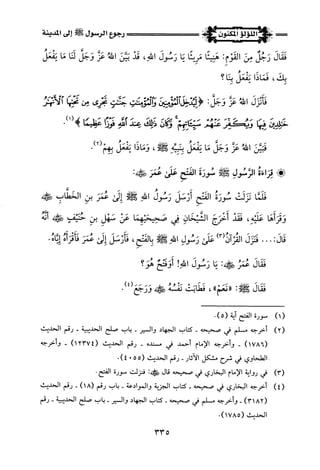 اللؤلؤ المكنون رجوع الرسول ﷺ إلى المدينة
فَقَالَ رَجُلٌ مِنَ القَوْمِ: هَنِيئًا مَرِيئًا يَا رَسُولَ اللهِ، قَدْ بَيَّنَ اللهُ عَزَّ وَجَلَّ لَنَا مَا يَفْعَلُ
بِكَ، فَمَاذَا يَفْعَلُ بِنَا؟
فَأَنْزَلَ اللهُ عَزَّ وَجَلَّ: ﴿لِيُدْخِلَ الْمُؤْمِنِينَ وَالْمُؤْمِنَاتِ جَنَّاتٍ تَجْرِي مِن تَحْتِهَا الْأَنْهَارُ
خَالِدِينَ فِيهَا وَيُكَفِّرَ عَنْهُمْ سَيِّئَاتِهِمْ وَكَانَ ذَلِكَ عِندَ اللَّهِ فَوْزًا عَظِيمًا﴾ (١).
فَبَيَّنَ اللهُ عَزَّ وَجَلَّ مَا يَفْعَلُ بِنَبِيِّهِ ﷺ، وَمَاذَا يَفْعَلُ بِهِمْ(٢).
قِرَاءَةُ الرَّسُولِ ﷺ سُورَةَ الفَتْحِ عَلَى عُمَرَ ﷺ:
فَلَمَّا نَزَلَتْ سُورَةُ الفَتْحِ أَرْسَلَ رَسُولُ اللهِ ﷺ إِلَى عُمَرَ بنِ الخَطَّابِ ﷺ
وَقَرَأَهَا عَلَيْهِ، فَقَدْ أَخْرَجَ الشَّيْخَانِ فِي صَحِيحَيْهِمَا عَنْ سَهْلِ بنِ حُنَيْفٍ ﷺ أَنَّهُ
قَالَ:... فَنَزَلَ القُرْآنُ(٣) عَلَى رَسُولِ اللهِ ﷺ بِالفَتْحِ، فَأَرْسَلَ إِلَى عُمَرَ فَأَقْرَأَهُ إِيَّاهُ.
فَقَالَ عُمَرُ ﷺ: يَا رَسُولَ اللهِ! أَوَفَتْحٌ هُوَ؟
فَقَالَ ﷺ: «نَعَمْ»، فَطَابَتْ نَفْسُهُ ﷺ وَرَجَعَ(٤).
(١) سورة الفتح آية (٥).
(٢) أخرجه مسلم في صحيحه ـ كتاب الجهاد والسير ـ باب صلح الحديبية ـ رقم الحديث
(١٧٨٦) ـ وأخرجه الإمام أحمد في مسنده ـ رقم الحديث (١٢٣٧٤) ـ وأخرجه
الطحاوي في شرح مشكل الآثار ـ رقم الحديث (٤٠٥٥).
(٣) في رواية الإمام البخاري في صحيحه قال ﷺ: فنزلت سورة الفتح.
(٤) أخرجه البخاري في صحيحه ـ كتاب الجزية والموادعة ـ باب رقم (١٨) ـ رقم الحديث
(٣١٨٢) ـ وأخرجه مسلم في صحيحه ـ كتاب الجهاد والسير ـ باب صلح الحديبية ـ رقم
الحديث (١٧٨٥).
٣٣٥